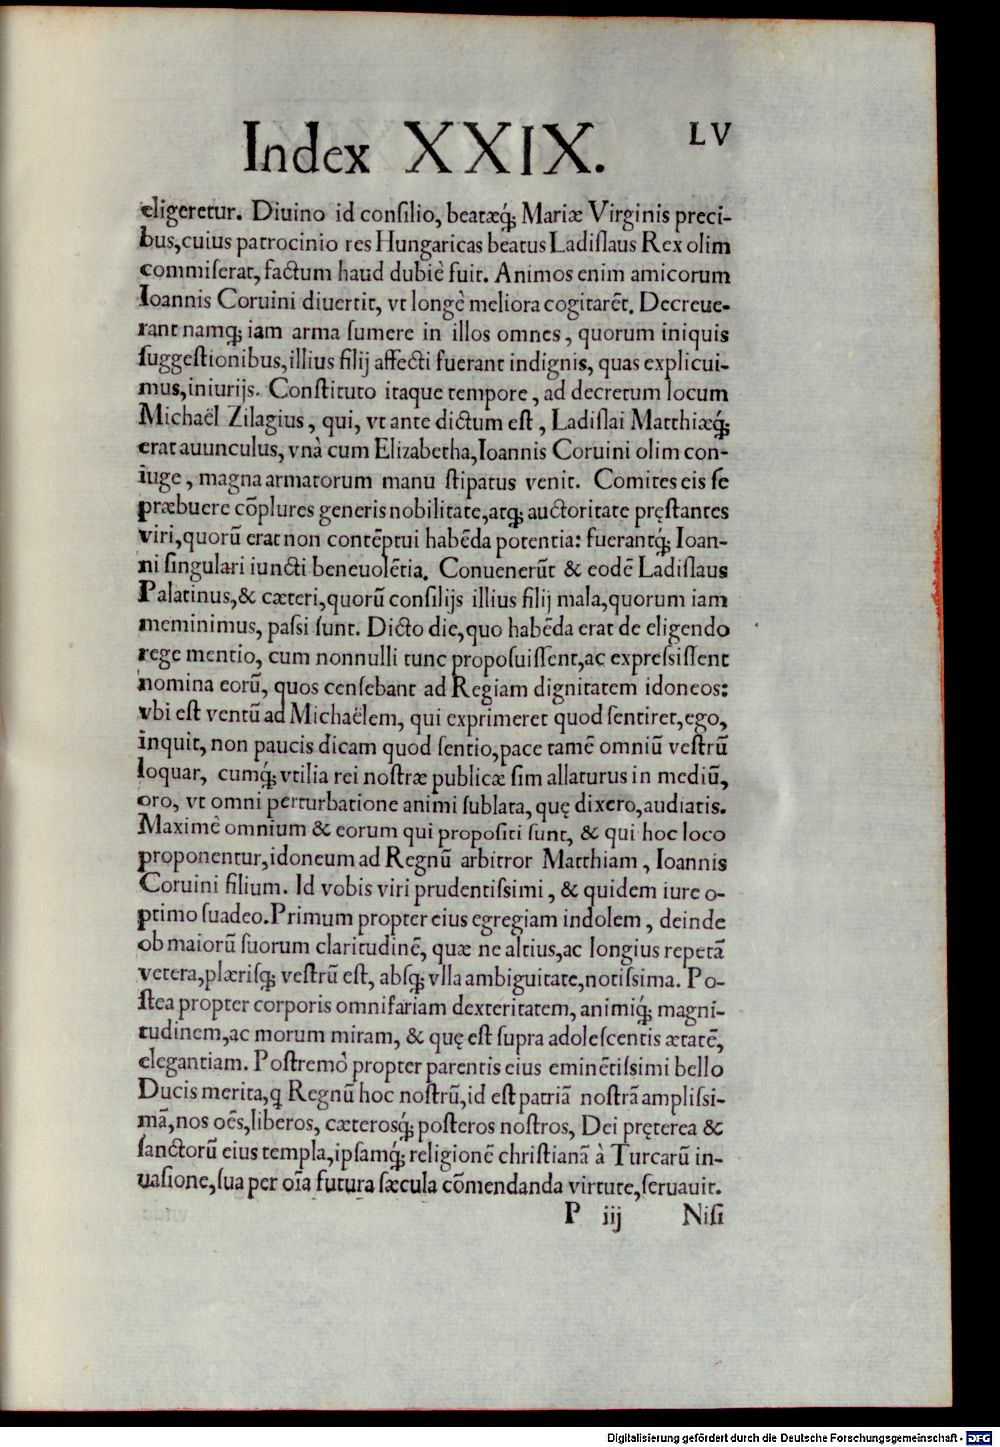 Index XXIX. LV
eligeretur. Diuino id conſilio, beatæq́; Mariæ Virginis preci-
bus,cuius patrocinio res Hungaricas beatus Ladiſlaus Rex olim
commiſerat, factum haud dubiè fuit. Animos enim amicorum
Ioannis Coruini diuertit, vt longè meliora cogitarẽt. Decreue-
rant namq; iam arma ſumere in illos omnes, quorum iniquis
ſuggeſtionibus,illius filij affecti fuerant indignis, quas explicui-
mus,iniurijs. Conſtituto itaque tempore, ad decretum locum
Michaël Zilagius, qui, vt ante dictum eſt, Ladiſlai Matthiæq́;
erat auunculus, vnà cum Elizabetha,Ioannis Coruini olim con-
iuge, magna armatorum manu ſtipatus venit. Comites eis ſe
præbuere cõplures generis nobilitate,atq; auctoritate pręſtantes
viri,quorũ erat non contẽptui habẽda potentia: fuerantq́; Ioan-
ni ſingulari iuncti beneuolẽtia. Conuenerũt & eodẽ Ladiſlaus
Palatinus,& cæteri,quorũ conſilijs illius filij mala,quorum iam
meminimus, paſsi ſunt. Dicto die,quo habẽda erat de eligendo
rege mentio, cum nonnulli tunc propoſuiſſent,ac expreſsiſſent
nomina eorũ, quos cenſebant ad Regiam dignitatem idoneos:
vbi eſt ventũ ad Michaëlem, qui exprimeret quod ſentiret,ego,
inquit, non paucis dicam quod ſentio,pace tamẽ omniũ veſtrũ
loquar, cumq́; vtilia rei noſtræ publicæ ſim allaturus in mediũ,
oro, vt omni perturbatione animi ſublata, quę dixero,audiatis.
Maximè omnium & eorum qui propoſiti ſunt, & qui hoc loco
proponentur,idoneum ad Regnũ arbitror Matthiam, Ioannis
Coruini filium. Id vobis viri prudentiſsimi, & quidem iure o-
ptimo ſuadeo.Primum propter eius egregiam indolem, deinde
ob maiorũ ſuorum claritudinẽ, quæ ne altius,ac longius repetã
vetera,plæriſq; veſtrũ eſt, abſq; vlla ambiguitate,notiſsima. Po-
ſtea propter corporis omnifariam dexteritatem, animiq́; magni-
tudinem,ac morum miram, & quę eſt ſupra adoleſcentis ætatẽ,
elegantiam. Poſtremò propter parentis eius eminẽtiſsimi bello
Ducis merita,q Regnũ hoc noſtrũ,id eſt patriã noſtrã ampliſsi-
mã,nos oẽs,liberos, cæterosq́; poſteros noſtros, Dei pręterea &
ſanctorũ eius templa,ipſamq́; religionẽ chriſtianã à Turcarũ in-
uaſione,ſua per oĩa futura ſæcula cõmendanda virtute,ſeruauit.
P iij Niſi
Digitalisierung gefördert durch die Deutsche Forschungsgemeinschaft - DFG